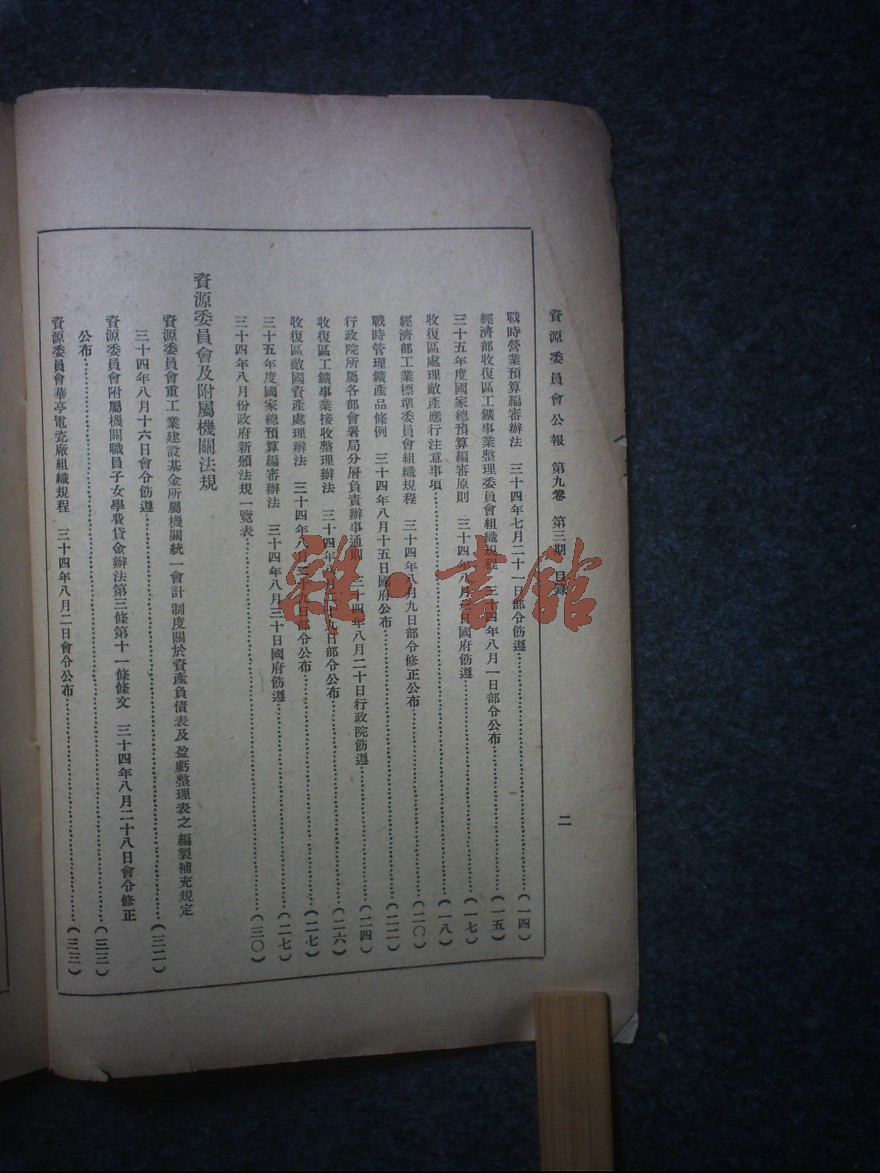 資源委員會公報　第九卷　第三期　目錄　二
戰時營業預算編審辦法　三十四年七月二十一日部令飭遵……(一四)
經濟部收復區工鑛事業整理委員會組織規程　三十四年八月一日部令公布……(一五)
三十五年度國家總預算編審原則　三十四年八月 日國府飭遵……(一七)
收復區處理敵產應行注意事項……(一八)
經濟部工業標準委員會組織規程　三十四年八月九日部令修正公布……(二〇)
戰時管理鑛產品條例　三十四年八月十五日國府公布……(二二)
行政院所屬各部會署局分層負責辦事通則　三十四年八月二十日行政院飭遵……(二四)
收復區工鑛事業接收整理辦法　三十四年八月二十九日部令公布……(二六)
收復區敵國資產處理辦法　三十四年八月二十九日部令公布……(二七)
三十五年度國家總預算編審辦法　三十四年八月三十日國府飭遵……(二七)
三十四年八月份政府新頒法規一覽表……(三〇)
資源委員會及附屬機關法規
資源委員會重工業建設基金所屬機關統一會計制度關於資產負債表及盈虧整理表之編製補充規定
三十四年八月十六日會令飭遵……(三二)
資源委員會附屬機關職員子女學費貸金辦法第三條第十一條條文　三十四年八月二十八日會令修正
公布……(三三)
資源委員會華亭電瓷廠組織規程　三十四年八月二日會令公布……(三三)
雜·書館